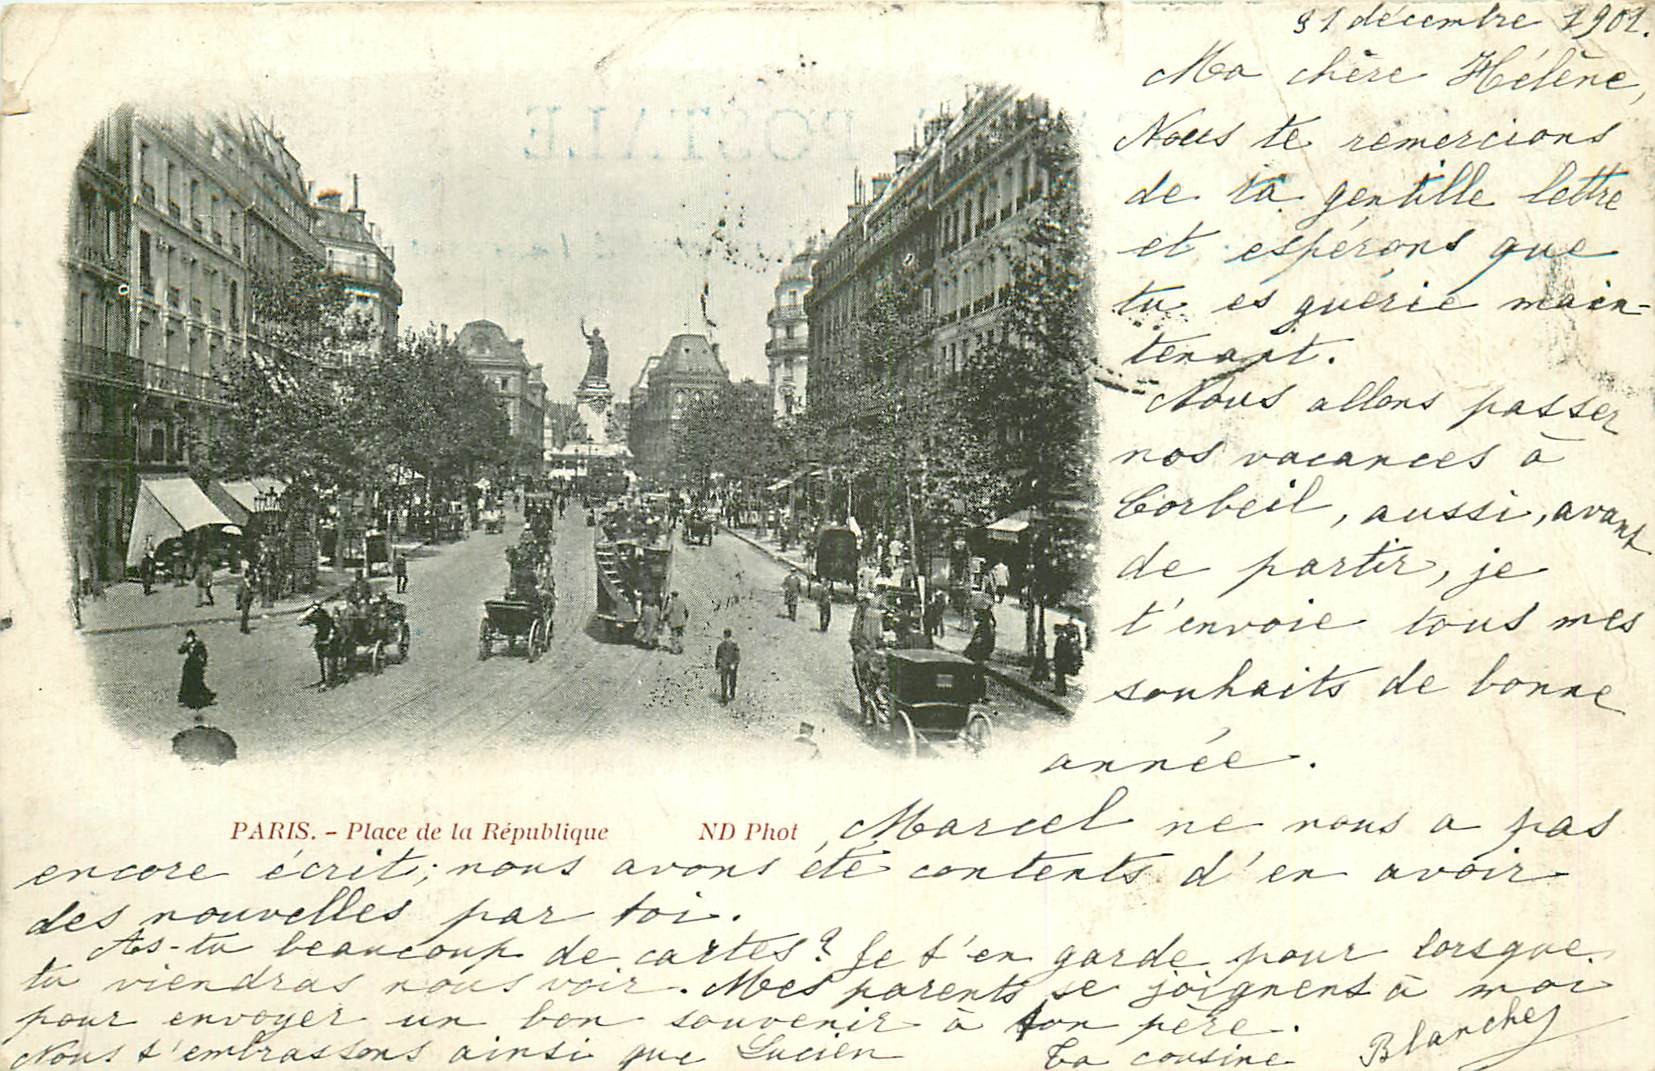 31 décembre 1901.
Ma chère Hélène,
Nous te remercions
de ta gentille lettre
et espérons que
tu es guérie main-
tenant.
Nous allons passer
nos vacances à
Corbeil, aussi, avant
de partir, je
t'envoie tous mes
souhaits de bonne
année.
PARIS. - Place de la République ND Phot
Marcel ne nous a pas
encore écrit; nous avons été contents d'en avoir
des nouvelles par toi.
As-tu beaucoup de cartes? Je t'en garde pour lorsque
tu viendras nous voir. Mes parents se joignent à moi
pour envoyer un bon souvenir à ton père.
Nous t'embrassons ainsi que Lucien
Ta cousine Blanche